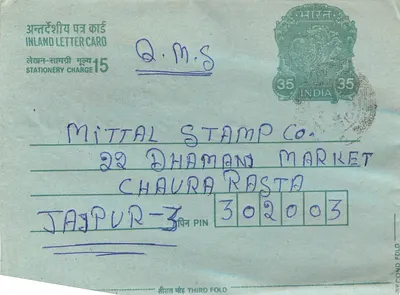 अन्तर्देशीय पत्र कार्ड
INLAND LETTER CARD
लेखन-सामग्री मूल्य
STATIONERY CHARGE 15
Q.M.S
भारत
35 35
INDIA
MITTAL STAMP Co.
22 DHAMANI MARKET
CHAURA RASTA
JAIPUR-3 पिन PIN 302003
तीसरा मोड़ THIRD FOLD
SECOND FOLD